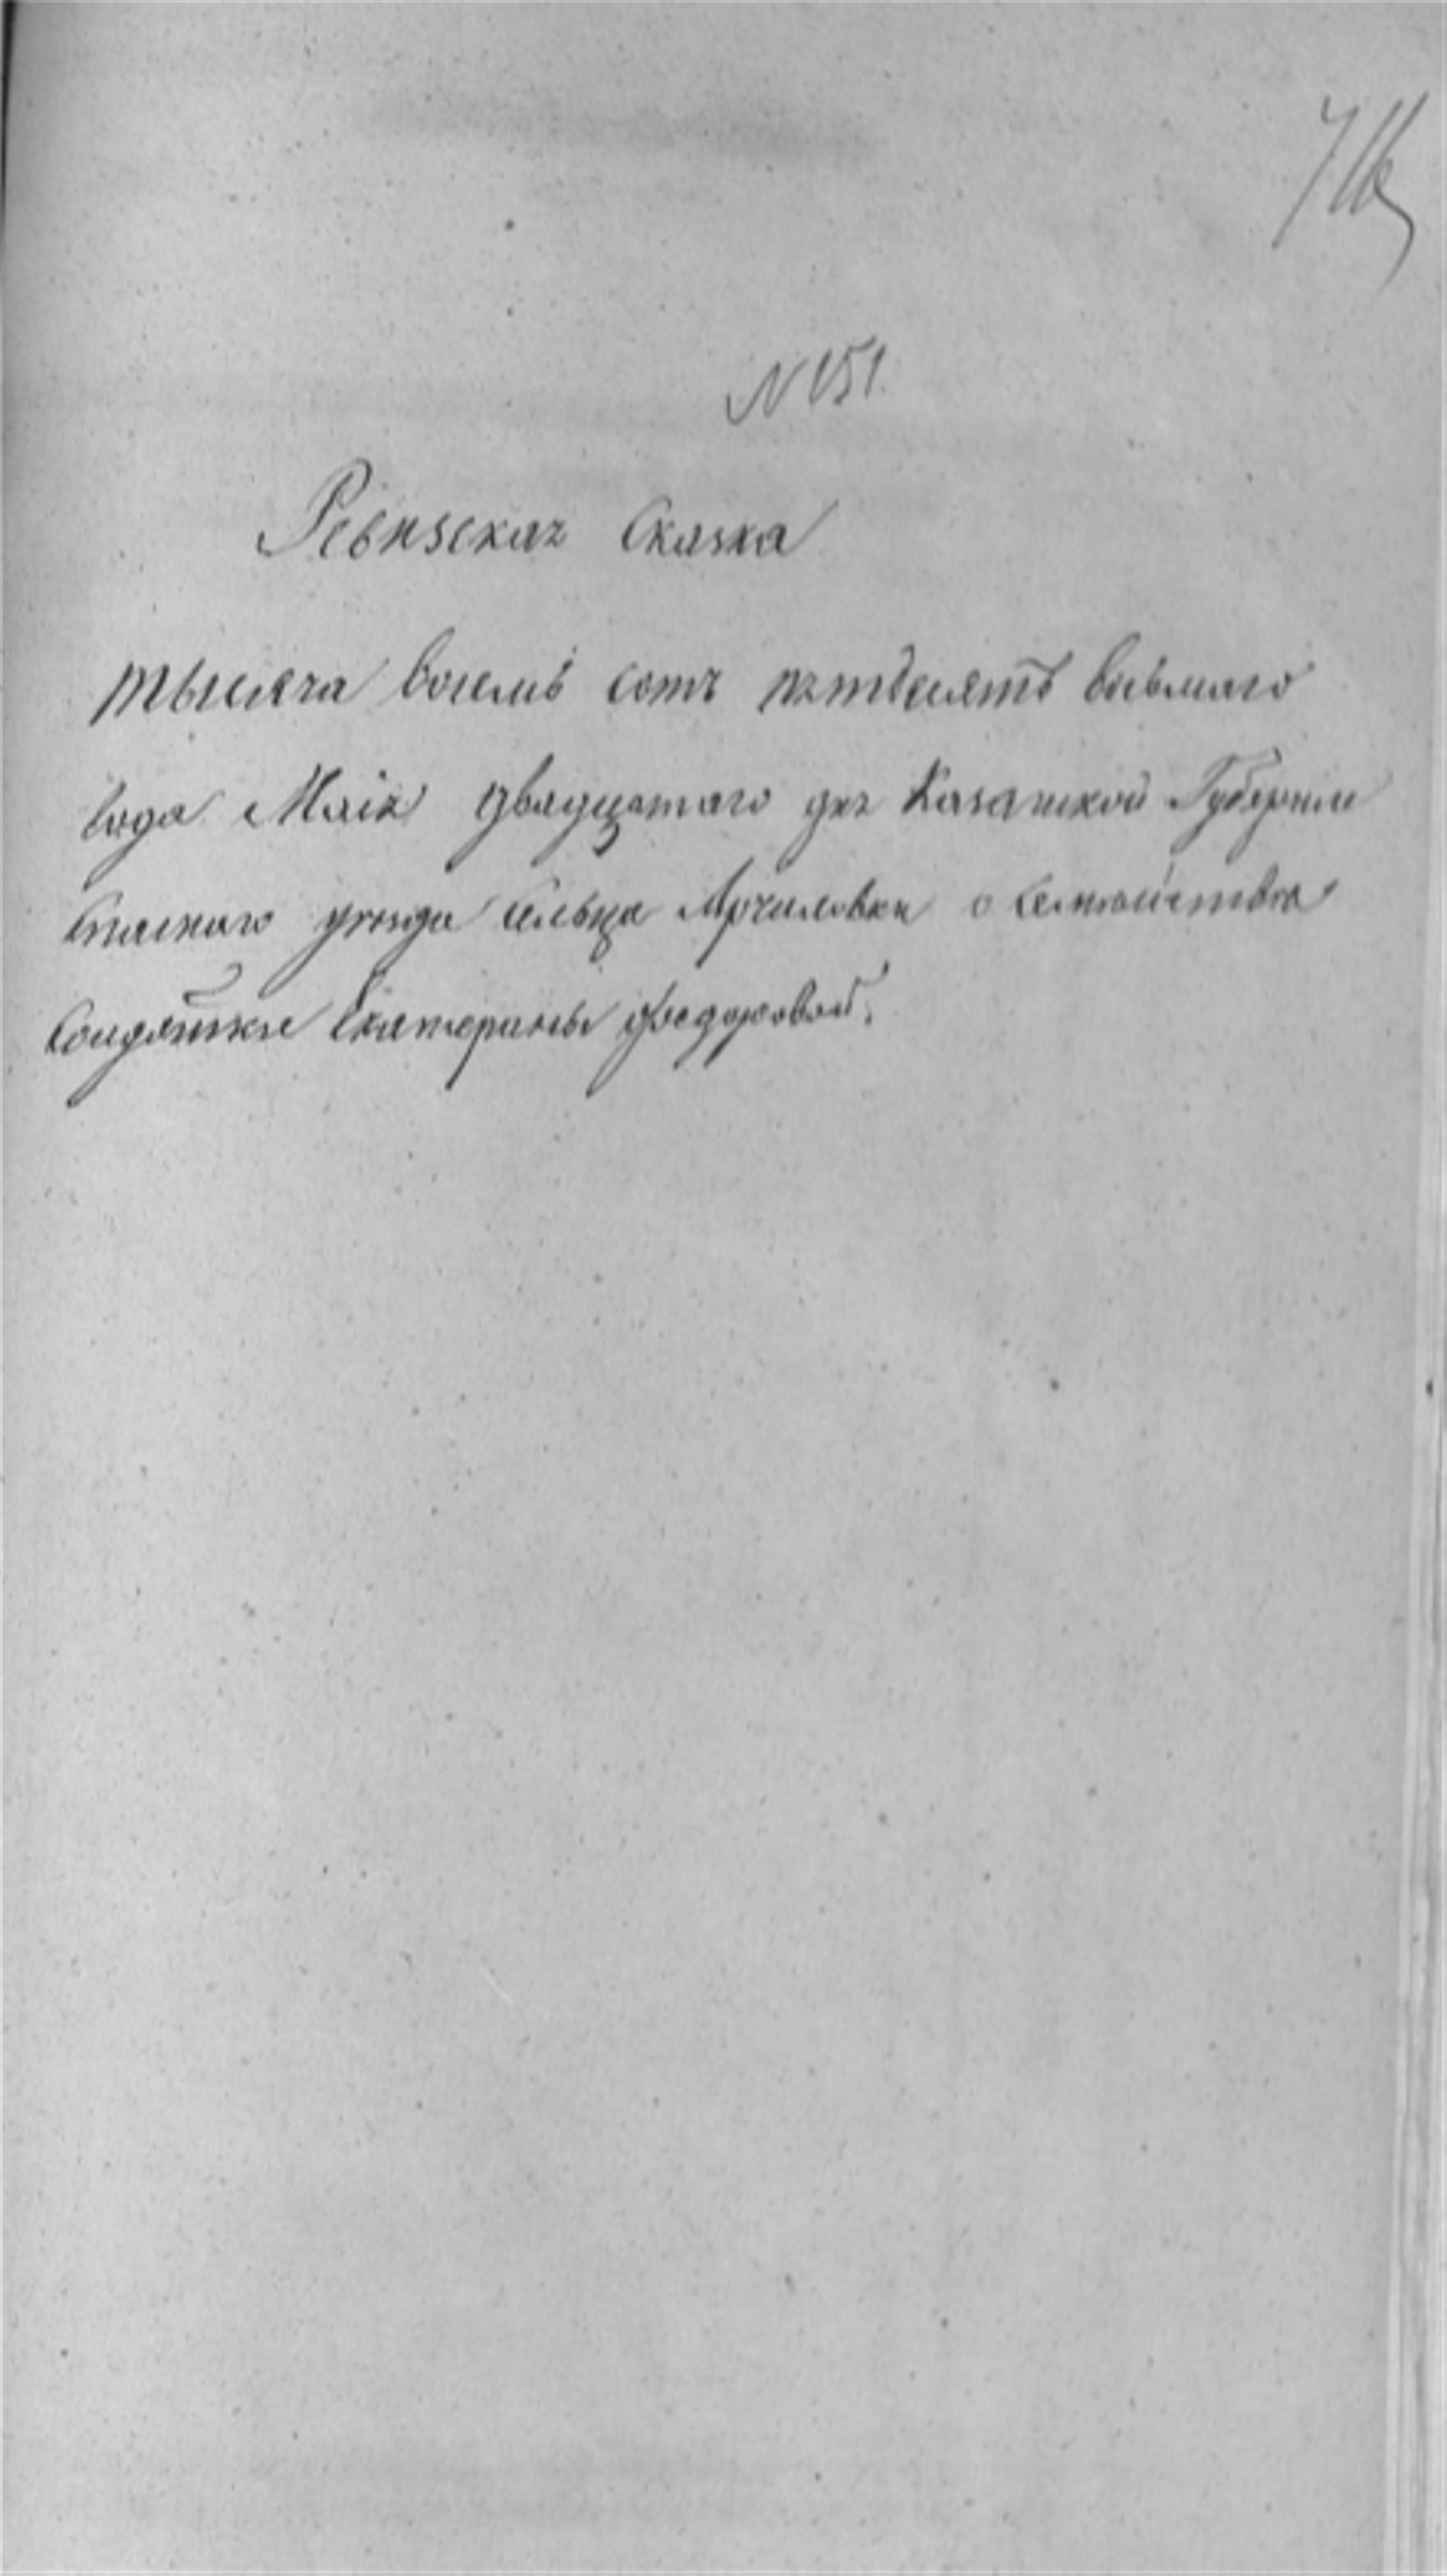 N 151.
Ревизская Сказка
тысяча восемь сотъ пятдесятъ восьмаго
года Маія двадцатаго дня Казанской Губерніи
Спаского уезда сельца Арчиловки о Семействе
Солдатки Екатерины Федоровой.